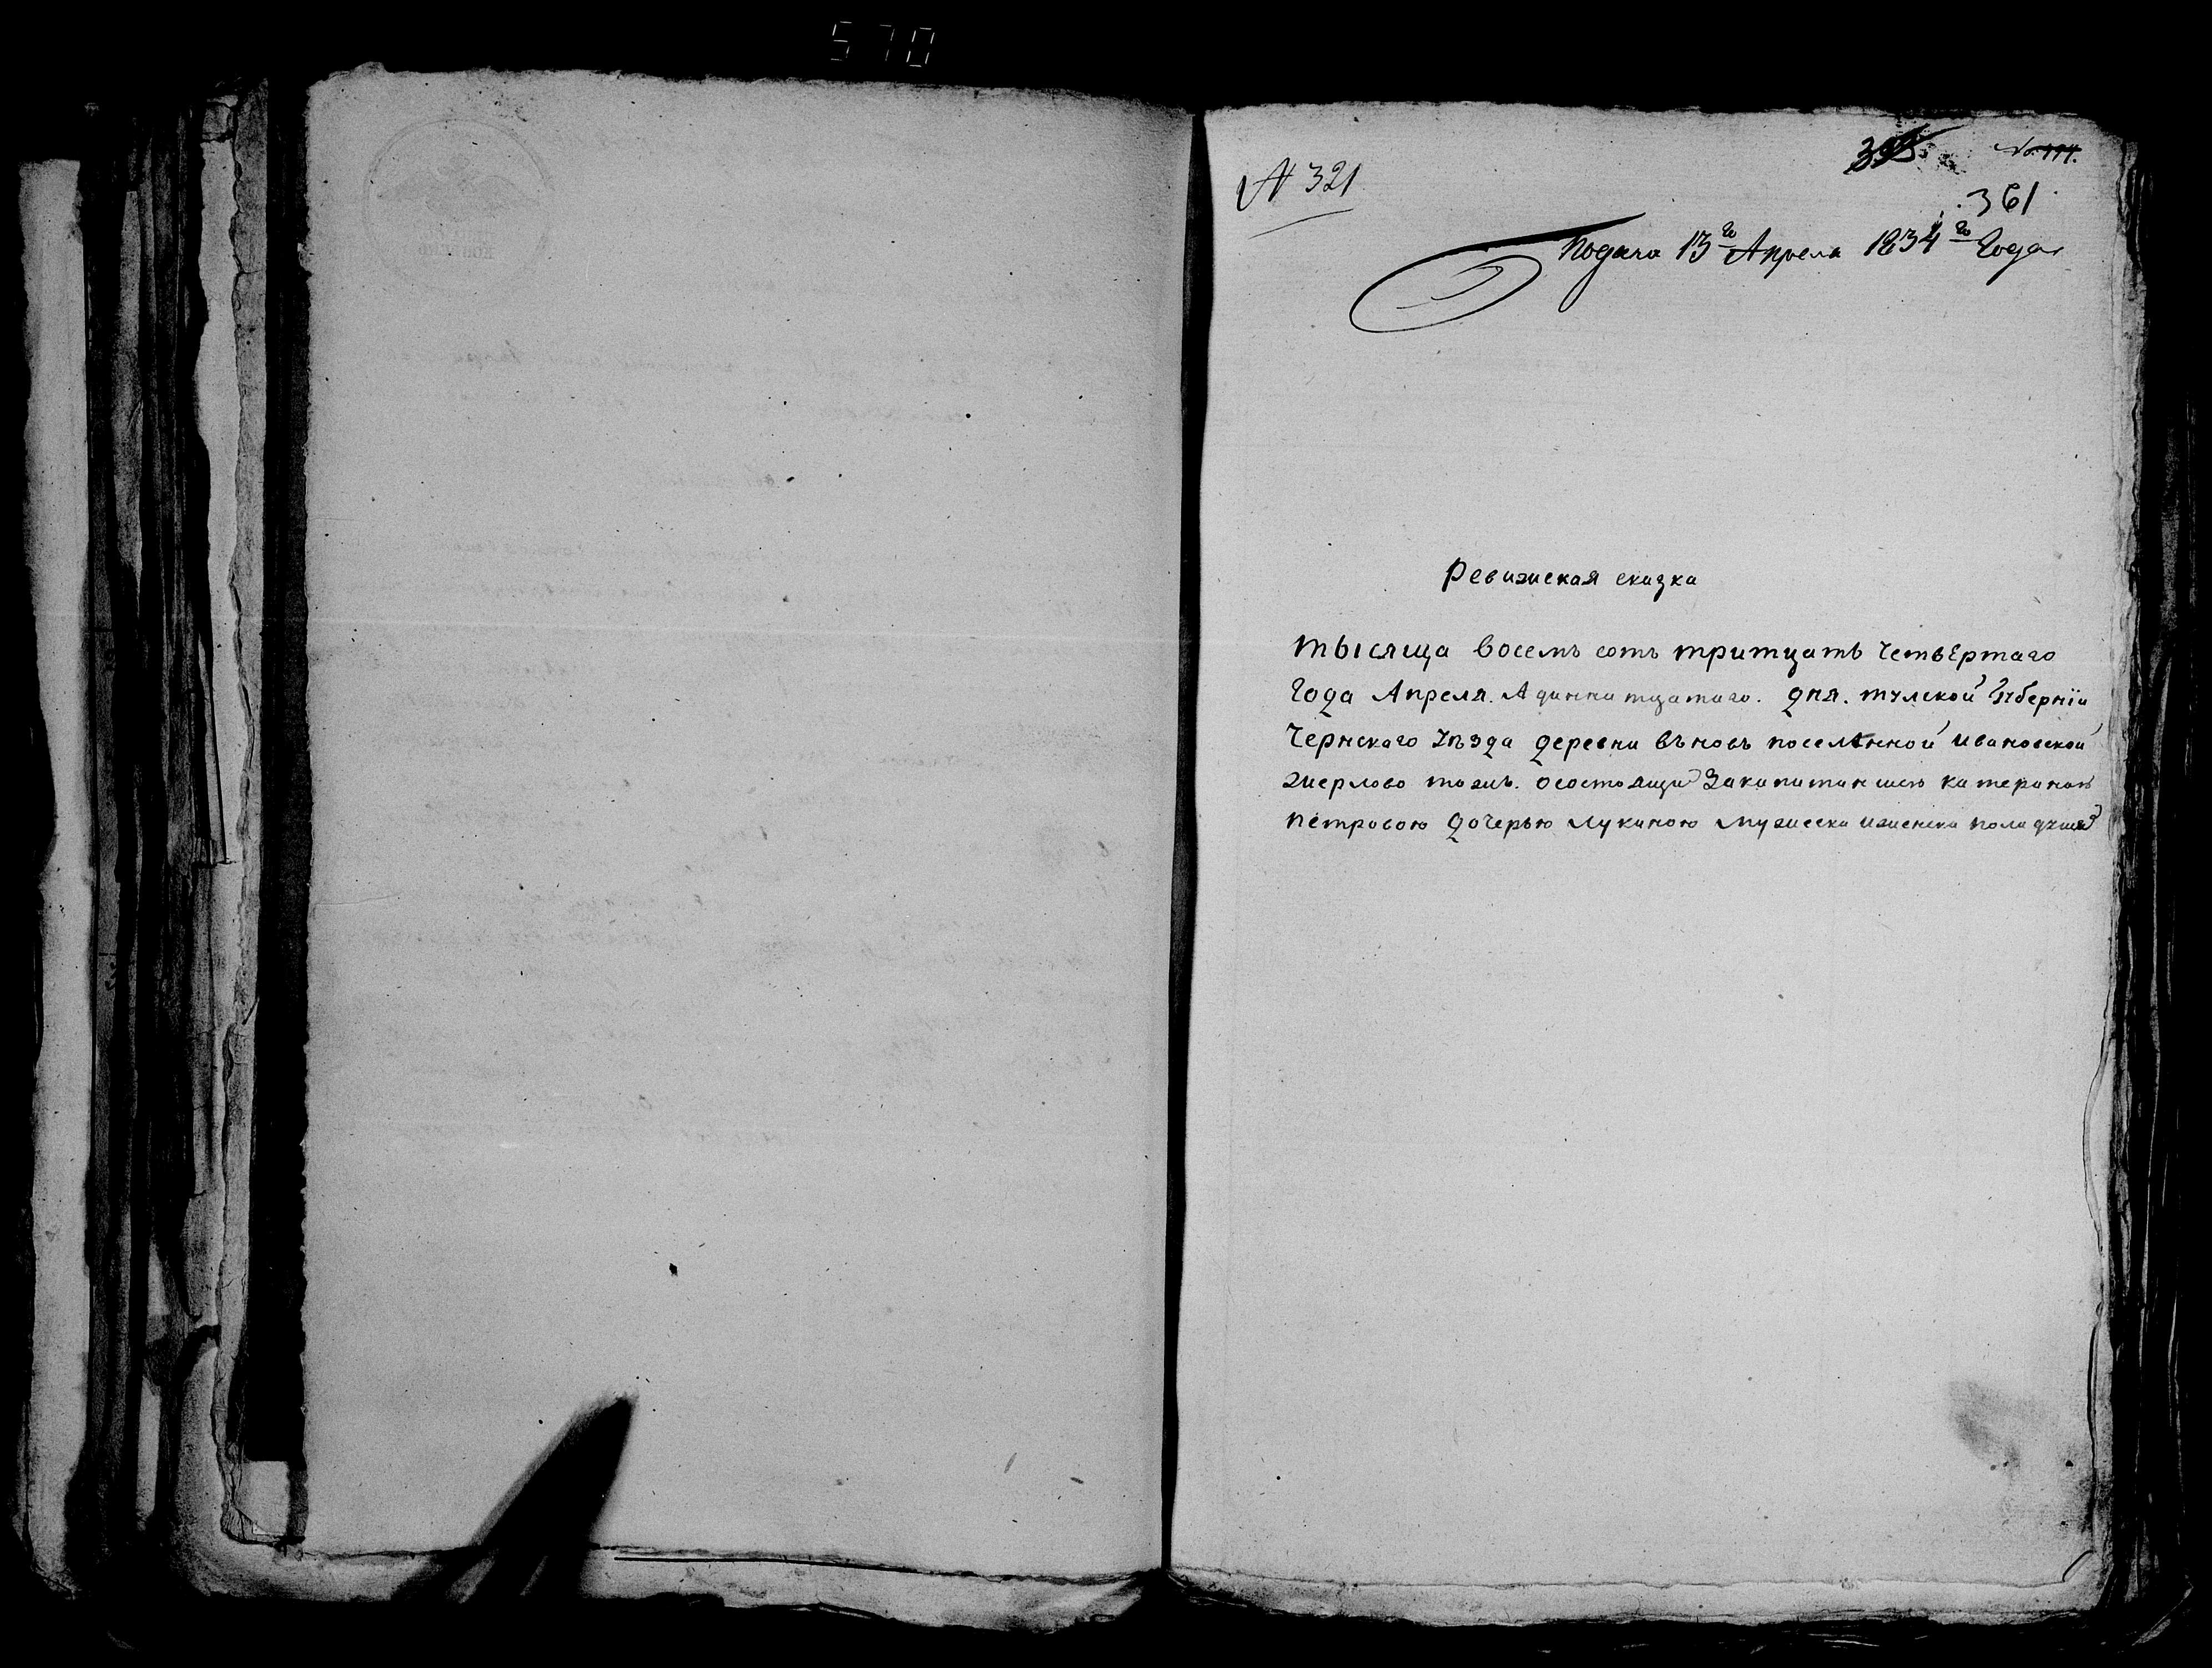 570
№ 321
395
№ 194.
361
Подана 13го Апреля 1834го Года
Ревизская сказка
тысяща восемъ сотъ тритцать четвертаго
Года Апреля. Адиннатцатаго. дня. тулской губернiи
Чернскаго уѣзда деревни вьновь поселѣнной ивановской
жерлово тожъ. осостоящи закапитаншею катериною
петровою дочерью лукиною мужеска иженска пола душ